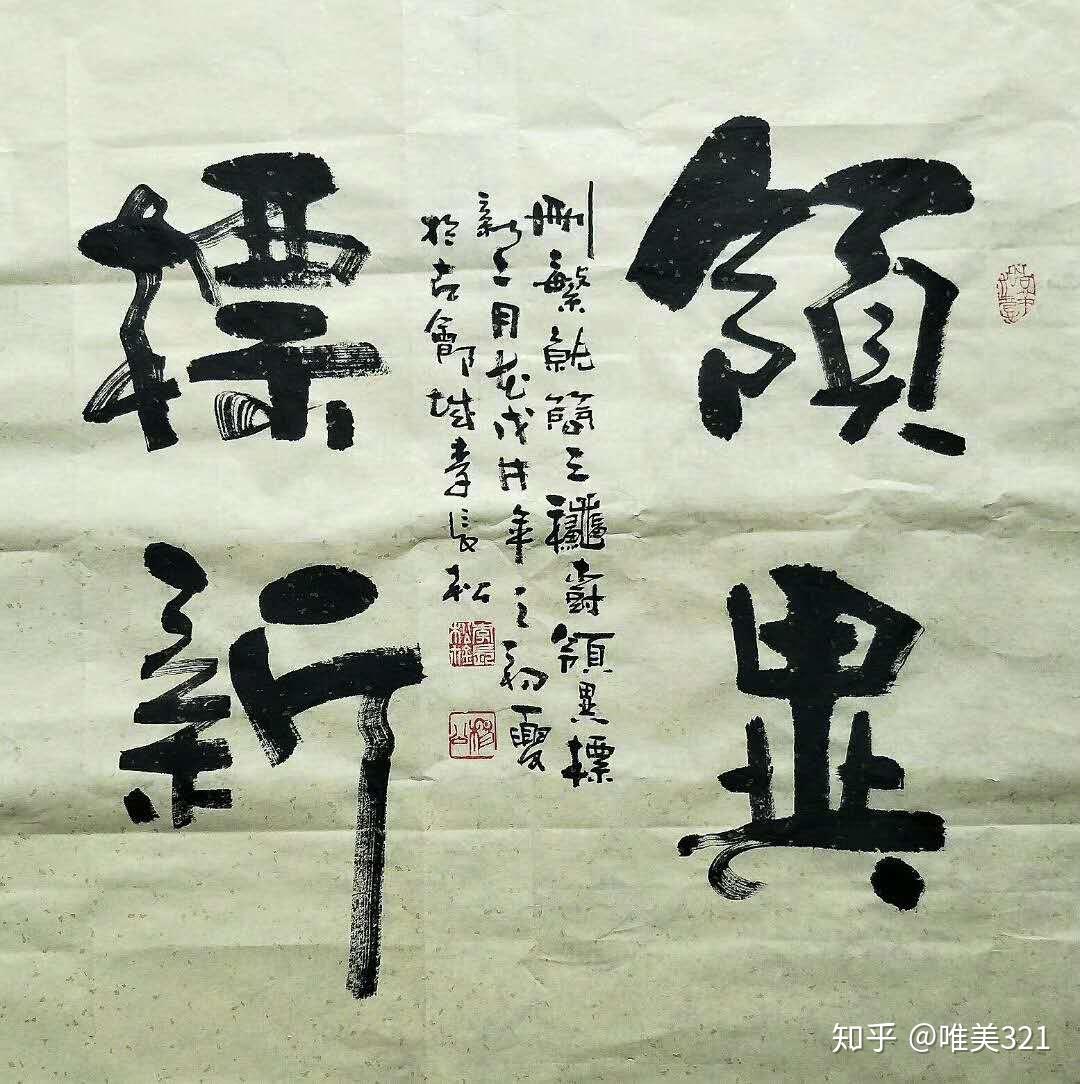 領異
標新
刪繁就簡三龝樹領異標
新二月花戊戌年之初夏
於古鄫城李長松
知乎 @唯美321